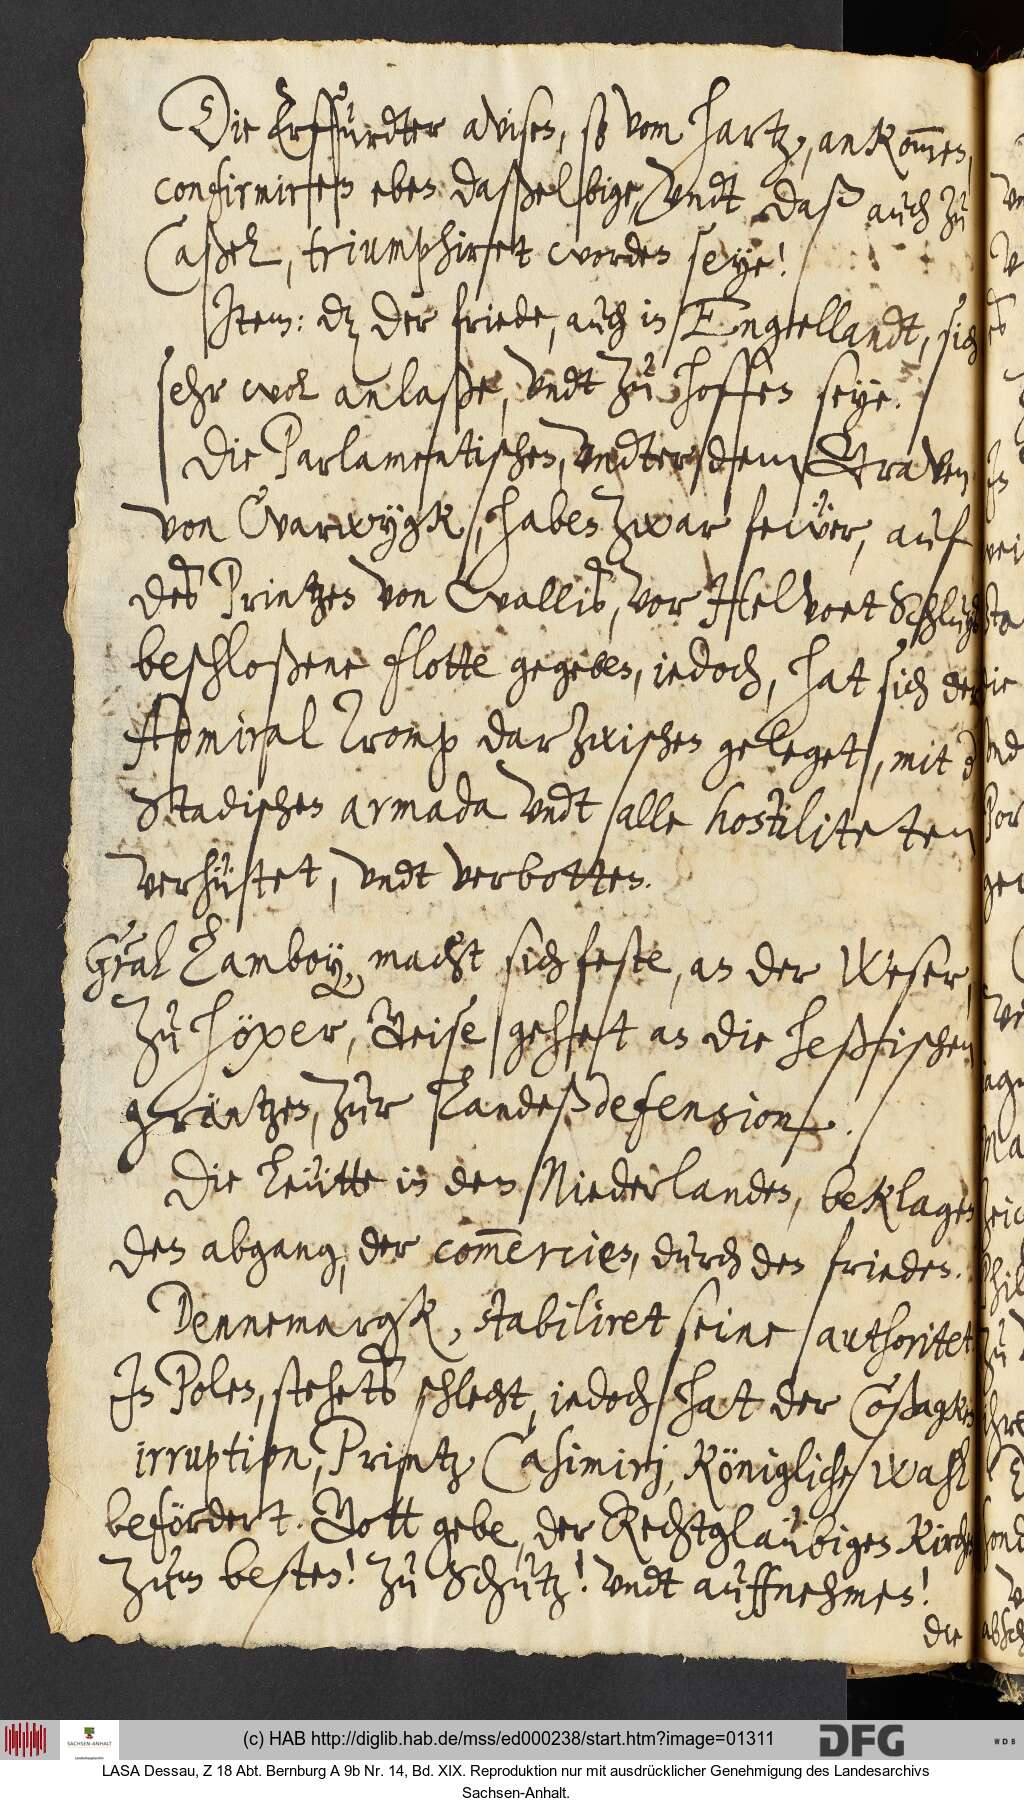 Die Erffurdter avisen, so vom Hartz, ankom̅en,
confirmiren eben daßelbige, undt daß auch zu
Caßel, triumphiret worden seye!
Item: dz der friede, auch in Engellandt, sich
sehr wol anlaße, undt zu hoffen seye.
Die Parlamentischen, undter dem Graven
von Warwygk, haben zwar feüer, auf
des Printzen von Wallis, vor Helvoet Schluys
beschloßene flotte gegeben, iedoch, hat sich der
Admiral Tromp darzwischen geleget, mit d
Stadischen armada undt alle hostiliteten
verhütet, undt verbotten.
Gral Lamboy, macht sich feste, an der Weser,
zu Höxer, Geise gehet an die Heßischen
gräntzen, zur Landeßdefension.
Die Leütte in den Niederlanden, beklagen
den abgang, der com̅ercien, durch den frieden.
Dennemargk, stabiliret seine authoritet.
In Polen, stehets schlecht, iedoch hat der Coßagken
irruption, Printz Casimirj, Königliche wahl
befördert. Gott gebe, der Rechtglaübigen Kirche
zum besten! zu Schutz! undt auffnehmen!
die
(c) HAB http://diglib.hab.de/mss/ed000238/start.htm?image=01311
DFG
WDB
SACHSEN-ANHALT
LASA Dessau, Z 18 Abt. Bernburg A 9b Nr. 14, Bd. XIX. Reproduktion nur mit ausdrücklicher Genehmigung des Landesarchivs
Sachsen-Anhalt.